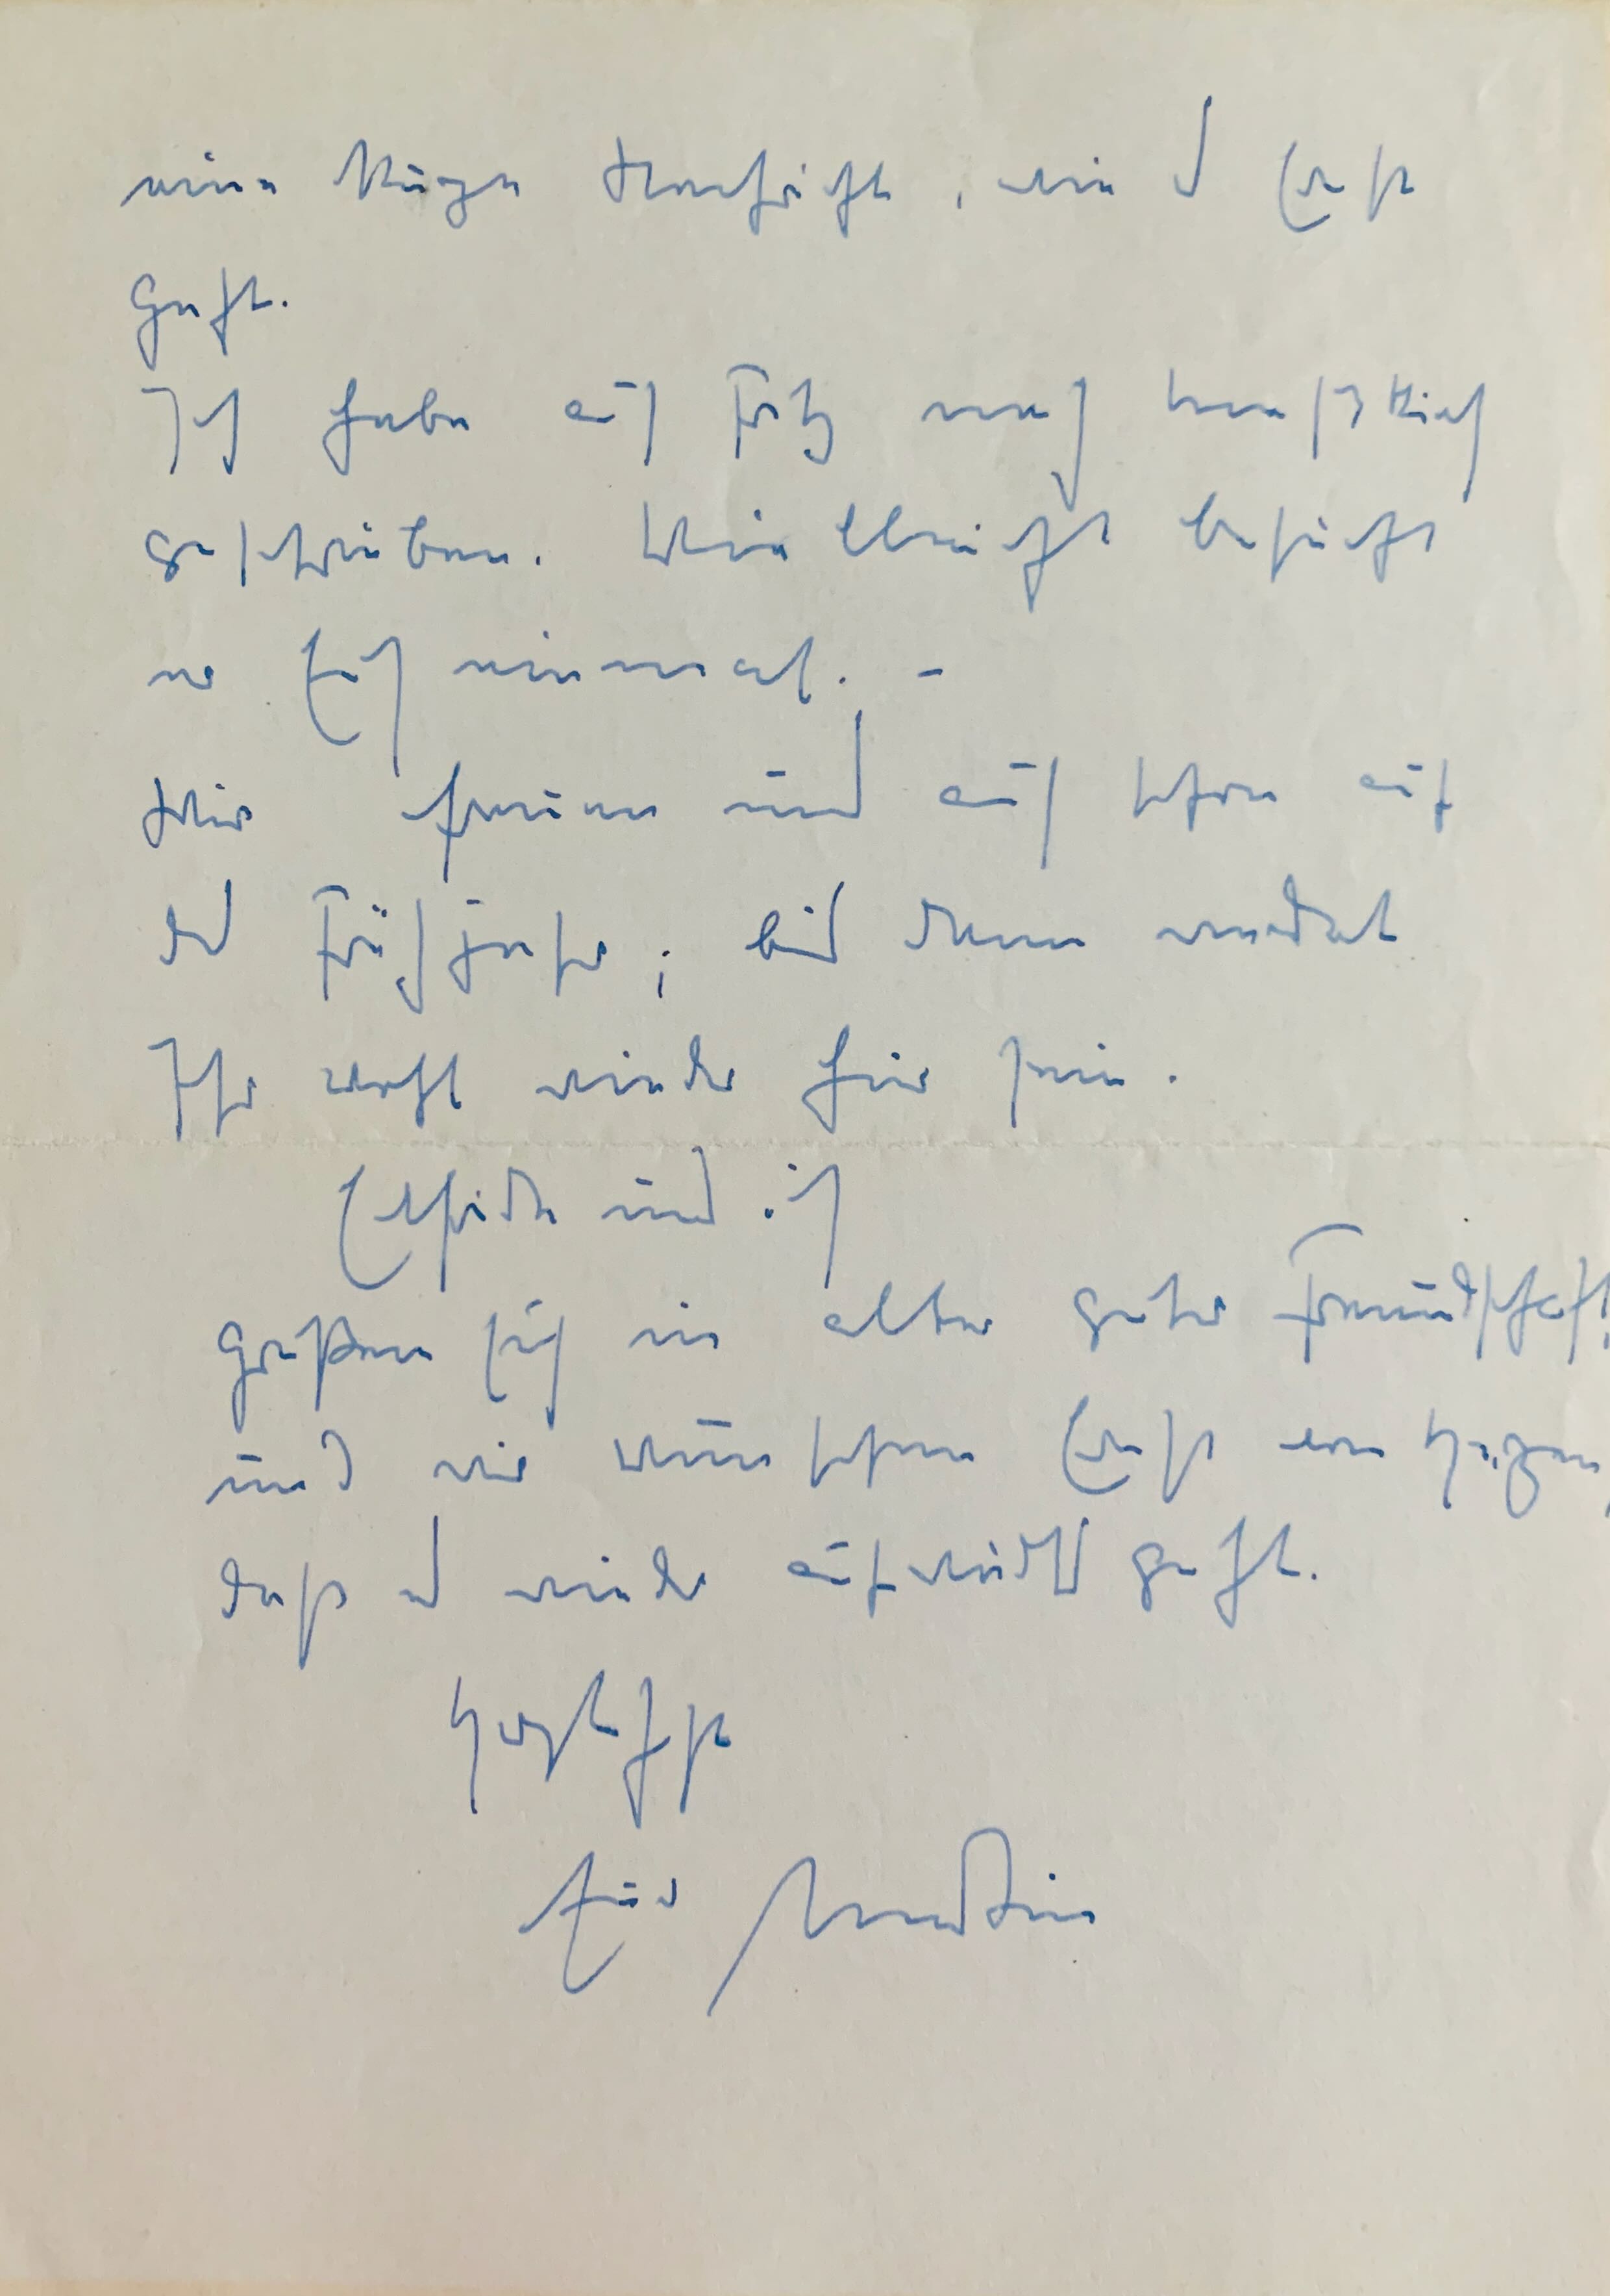 eine kurze Nachricht, wie es Ernst
geht.
Ich habe auch Fritz nach Meßkirch
geschrieben. Vielleicht besucht
er Euch einmal. –
Wir freuen uns auch schon auf
das Frühjahr; bis dann werdet
Ihr wohl wieder hier sein.
Elfride und ich
grüßen Euch in alter guter Freundschaft,
und wir wünschen Ernst von Herzen,
daß es wieder aufwärts geht.
Herzlichst
Euer Martin